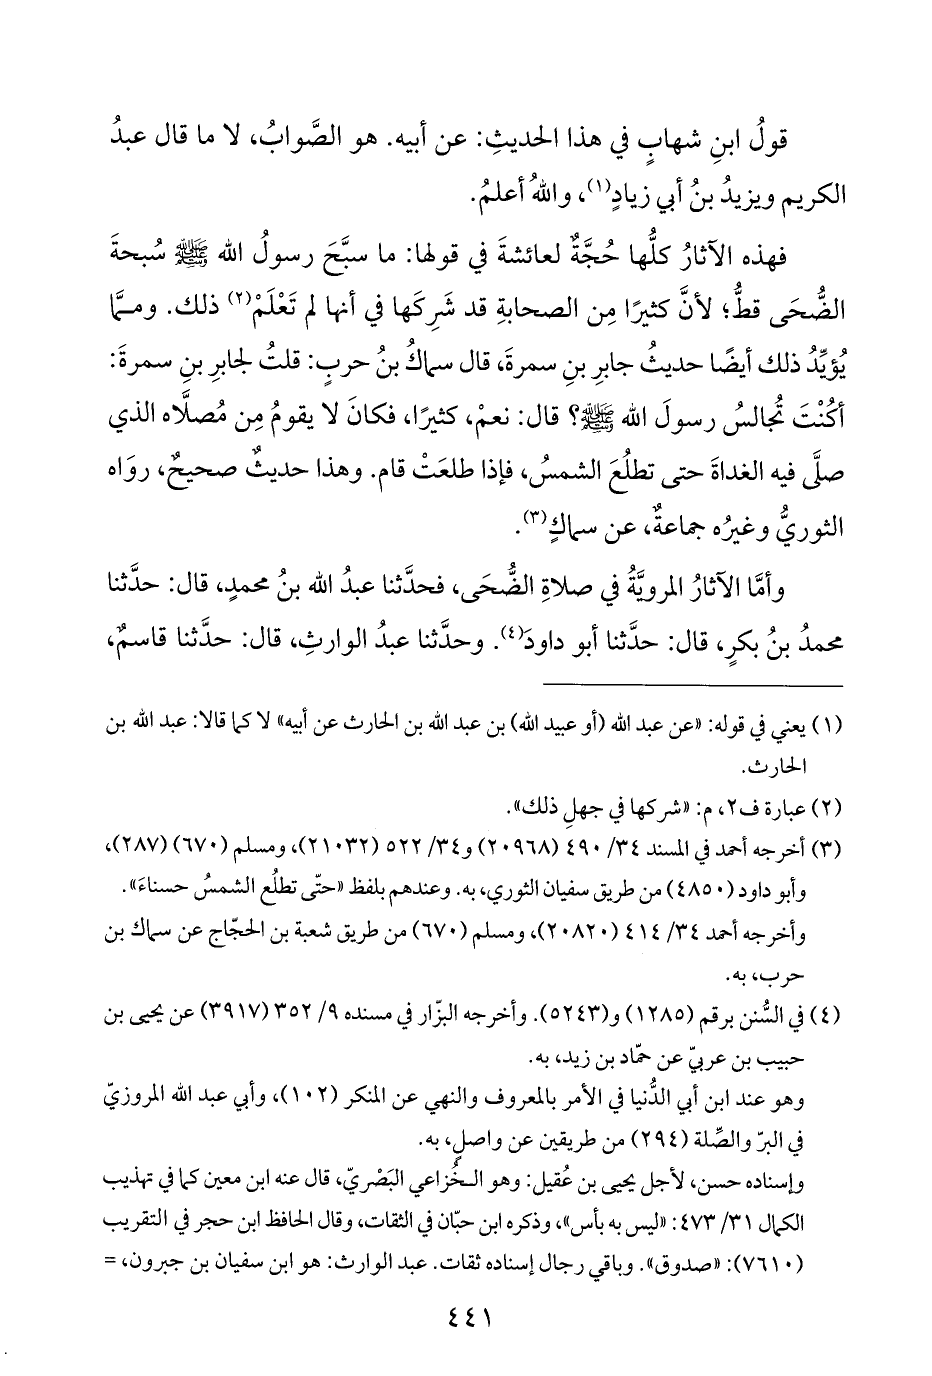 قولُ ابنِ شهابٍ في هذا الحديثِ: عن أبيه. هو الصَّوابُ، لا ما قال عبدُ
الكريم ويزيدُ بنُ أبي زيادٍ(١)، واللهُ أعلمُ.
فهذه الآثارُ كلُّها حُجَّةٌ لعائشةَ في قولها: ما سبَّحَ رسولُ الله ﷺ سُبحةَ
الضُّحَى قطُّ؛ لأنَّ كثيرًا مِن الصحابةِ قد شَرِكَها في أنها لم تَعْلَمْ(٢) ذلك. وممَّا
يُؤيِّدُ ذلك أيضًا حديثُ جابرِ بنِ سمرةَ، قال سماكُ بنُ حربٍ: قلتُ لجابرِ بنِ سمرةَ:
أكُنْتَ تُجالسُ رسولَ الله ﷺ؟ قال: نعمْ، كثيرًا، فكانَ لا يقومُ مِن مُصلَّاه الذي
صلَّى فيه الغداةَ حتى تطلُعَ الشمسُ، فإذا طلعَتْ قام. وهذا حديثٌ صحيحٌ، روَاه
الثوريُّ وغيرُه جماعةٌ، عن سماكٍ(٣).
وأمَّا الآثارُ المرويَّةُ في صلاةِ الضُّحَى، فحدَّثنا عبدُ الله بنُ محمدٍ، قال: حدَّثنا
محمدُ بنُ بكرٍ، قال: حدَّثنا أبو داودَ(٤). وحدَّثنا عبدُ الوارثِ، قال: حدَّثنا قاسمٌ،
(١) يعني في قوله: «عن عبد الله (أو عبيد الله) بن عبد الله بن الحارث عن أبيه» لا كما قالا: عبد الله بن
الحارث.
(٢) عبارة ف٢، م: «شركها في جهلِ ذلك».
(٣) أخرجه أحمد في المسند ٣٤/ ٤٩٠ (٢٠٩٦٨) و٣٤/ ٥٢٢ (٢١٠٣٢)، ومسلم (٦٧٠) (٢٨٧)،
وأبو داود (٤٨٥٠) من طريق سفيان الثوري، به. وعندهم بلفظ «حتّى تطلُع الشمسُ حسناءَ».
وأخرجه أحمد ٣٤/ ٤١٤ (٢٠٨٢٠)، ومسلم (٦٧٠) من طريق شعبة بن الحجّاج عن سماك بن
حرب، به.
(٤) في السُّنن برقم (١٢٨٥) و(٥٢٤٣). وأخرجه البزّار في مسنده ٩/ ٣٥٢ (٣٩١٧) عن يحيى بن
حبيب بن عربيّ عن حمّاد بن زيد، به.
وهو عند ابن أبي الدُّنيا في الأمر بالمعروف والنهي عن المنكر (١٠٢)، وأبي عبد الله المروزيّ
في البرّ والصِّلة (٢٩٤) من طريقين عن واصلٍ، به.
وإسناده حسن، لأجل يحيى بن عُقيل: وهو الخُزاعي البَصْريّ، قال عنه ابن معين كما في تهذيب
الكمال ٣١/ ٤٧٣: «ليس به بأس»، وذكره ابن حبّان في الثقات، وقال الحافظ ابن حجر في التقريب
(٧٦١٠): «صدوق». وباقي رجال إسناده ثقات. عبد الوارث: هو ابن سفيان بن جبرون، =
٤٤١